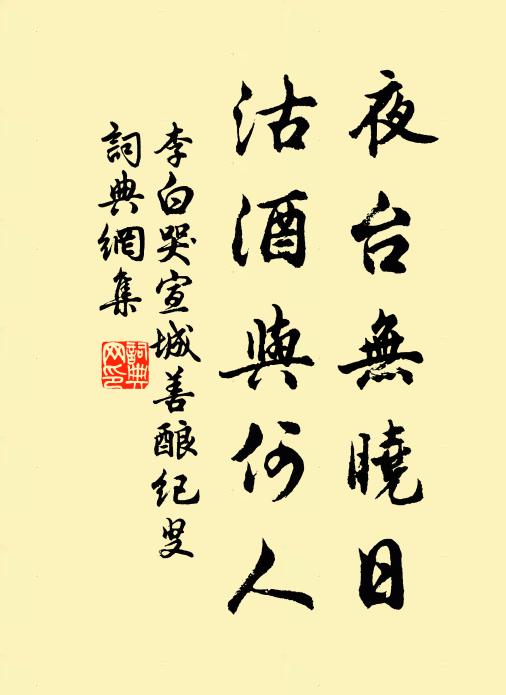 夜台無曉日
沽酒與何人
李白哭宣城善酿纪叟
詞典網集
詞典
网印